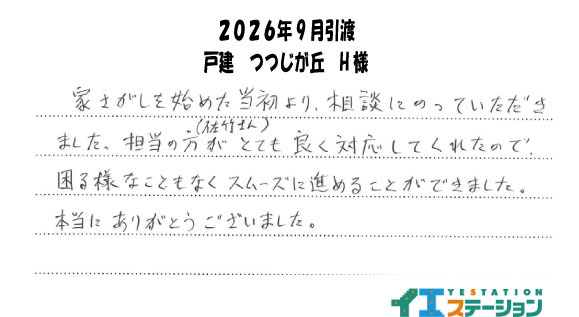 2026年9月引渡
戸建 つつじが丘 H様
家さがしを始めた当初より、相談にのっていただき
(佐竹さん)
ました、担当の方がとても良く対応してくれたので、
困る様なこともなくスムーズに進めることができました。
本当にありがとうございました。
YESTATION
イエステーション